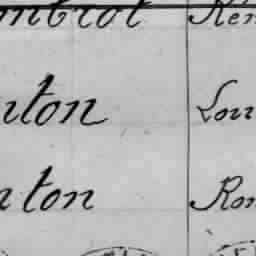 mbrot Rén
nton Lou
nton Ron